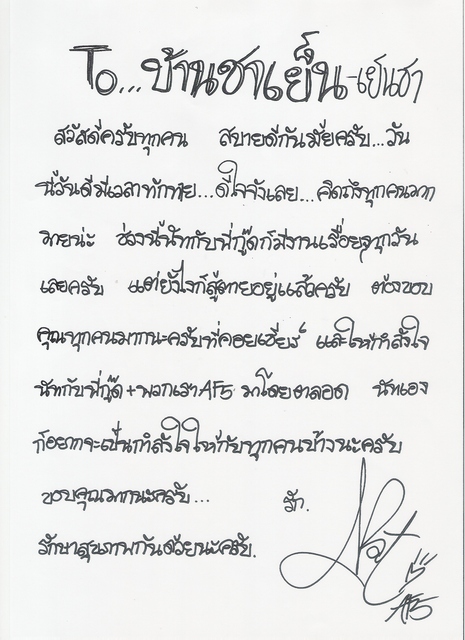 To...บ้านชาเย็น-เย็นชา
สวัสดีครับทุกคน สบายดีกันมั้ยครับ...วัน
นี้วันดีมีเวลาทักทาย...ดีใจจังเลย...คิดถึงทุกคนมาก
มายน่ะ ช่วงนี้นัทกับพี่กู๊ดก็มีงานเรื่อยๆทุกวัน
เลยครับ แต่ยังไงก็สู้ตายอยู่แล้วครับ ต้องขอบ
คุณทุกคนมากนะครับที่คอยเชียร์ และให้กำลังใจ
นัทกับพี่กู๊ด+พวกเราAF5 มาโดยตลอด นัทเอง
ก็อยากจะเป็นกำลังใจให้กับทุกคนบ้างนะครับ
ขอบคุณมากนะครับ... รัก.
รักษาสุขภาพกันด้วยนะครับ.
Nat
AF5